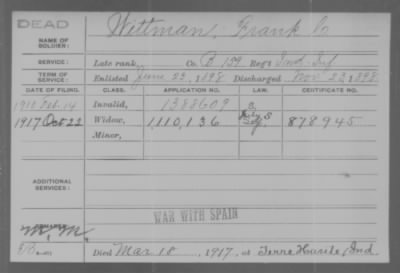 DEAD
NAME OF SOLDIER: Wittman, Frank C
SERVICE: Late rank, Co. B, 159 Reg't Ind Inf
TERM OF SERVICE: Enlisted June 23, 1898 Discharged Nov 23, 1898
DATE OF FILING. CLASS. APPLICATION NO. LAW. CERTIFICATE NO.
1910 Feb. 14 Invalid, 1388609
1917 Oct 22 Widow, 1,110,136 878945
Minor,
ADDITIONAL SERVICES:
WAR WITH SPAIN
M. M.
Died Mar 18, 1917, at Terre Haute, Ind.